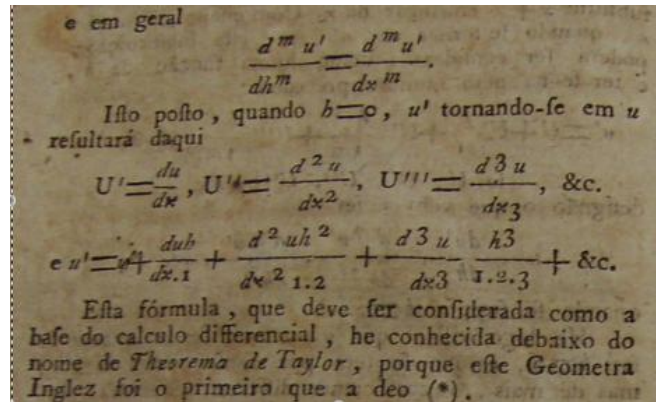 e em geral
d^m u' / dh^m = d^m u' / dx^m.
Iſto poſto, quando h=o, u' tornando-ſe em u
reſultará daqui
U'= du/dx, U''= d^2 u / dx^2, U'''= d3 u / dx3, &c.
e u'=u+ duh / dx.1 + d^2 uh^2 / dx^2 1.2 + d3 u / dx3 h3 / 1.2.3 + &c.
Eſta fórmula, que deve ſer conſiderada como a
baſe do calculo differencial, he conhecida debaixo do
nome de Theorema de Taylor, porque eſte Geometra
Inglez foi o primeiro que a deo (*).